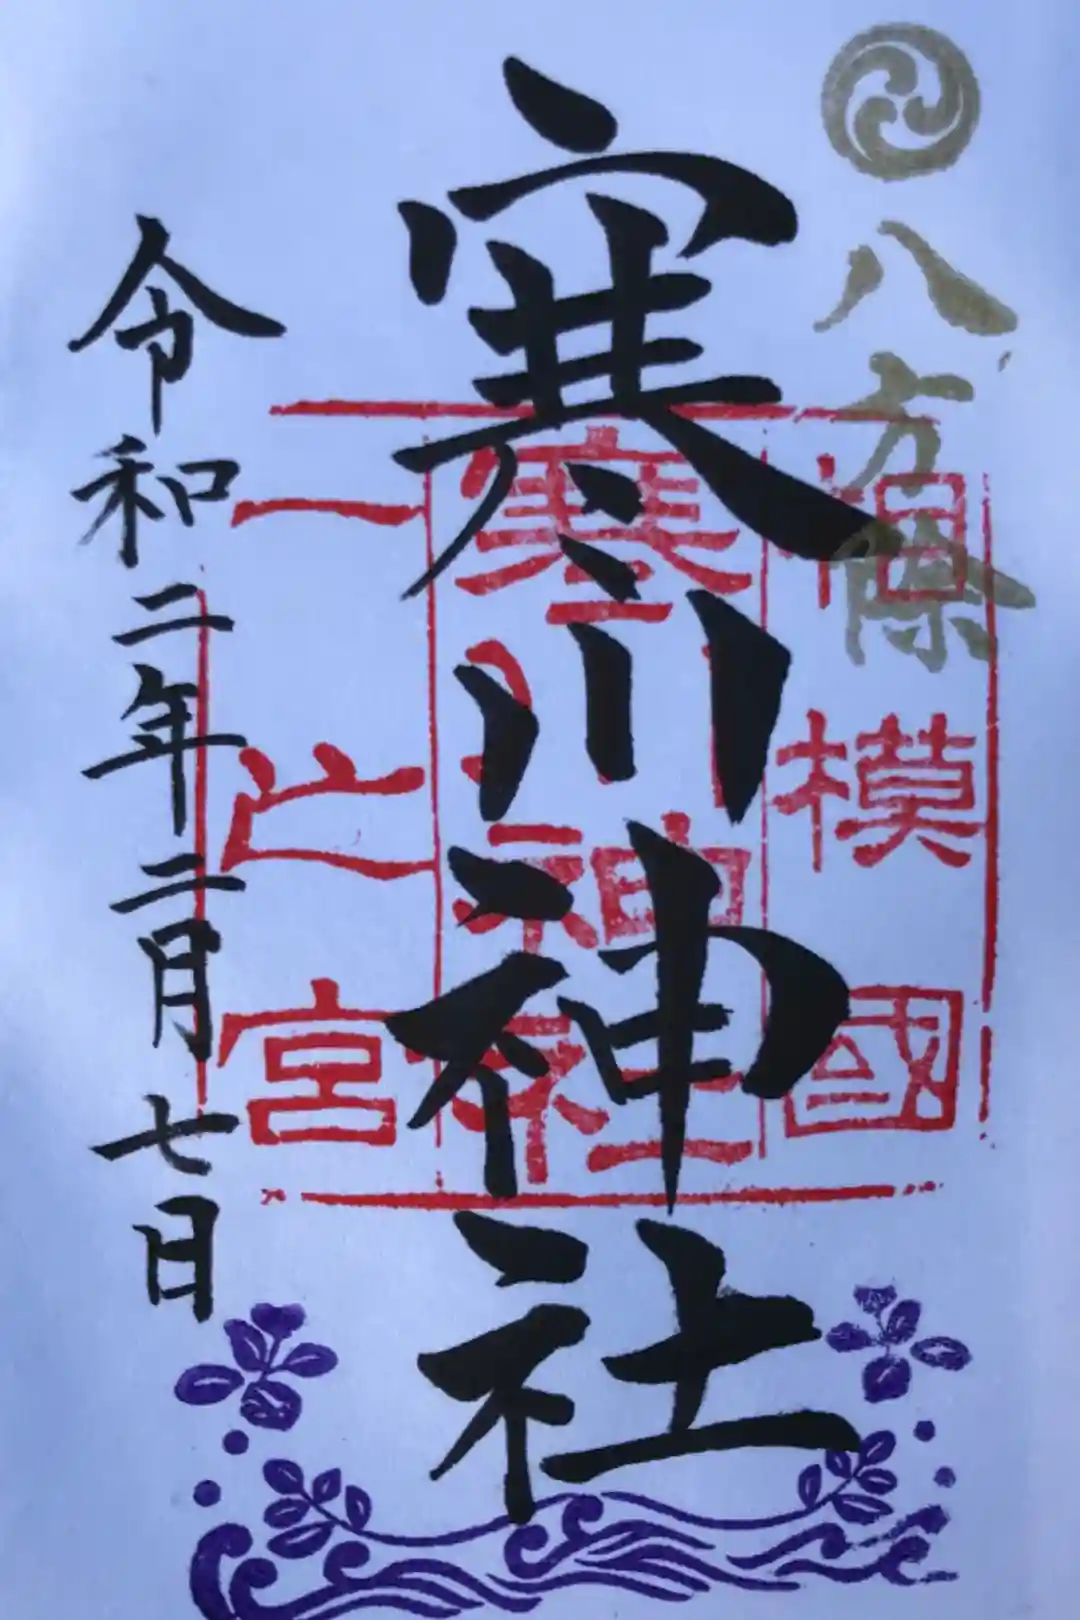 八方除
相模國
寒川神社
一之宮
寒川神社
令和二年二月七日